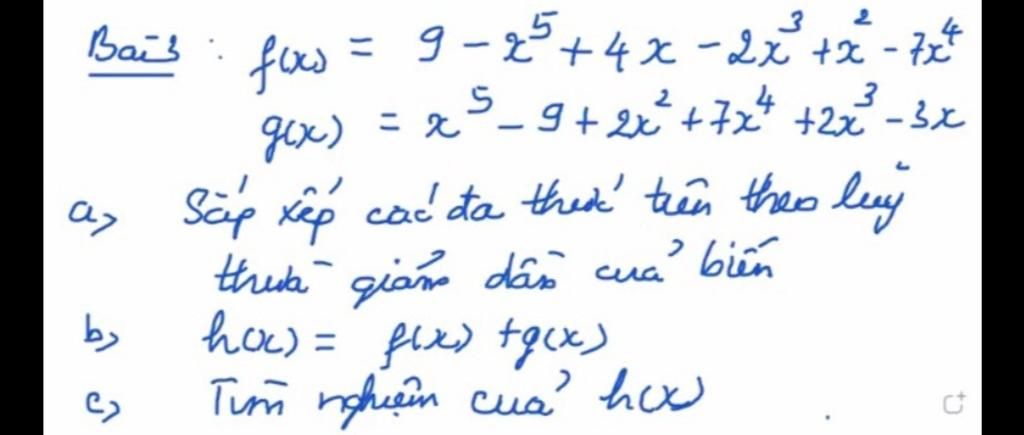 Bài 3 : f(x) = 9 - x⁵ + 4x - 2x³ + x² - 7x⁴
g(x) = x⁵ - 9 + 2x² + 7x⁴ + 2x³ - 3x
a, Sắp xếp các đa thức trên theo luỹ
thừa giảm dần của biến
b, h(x) = f(x) + g(x)
c, Tìm nghiệm của h(x)